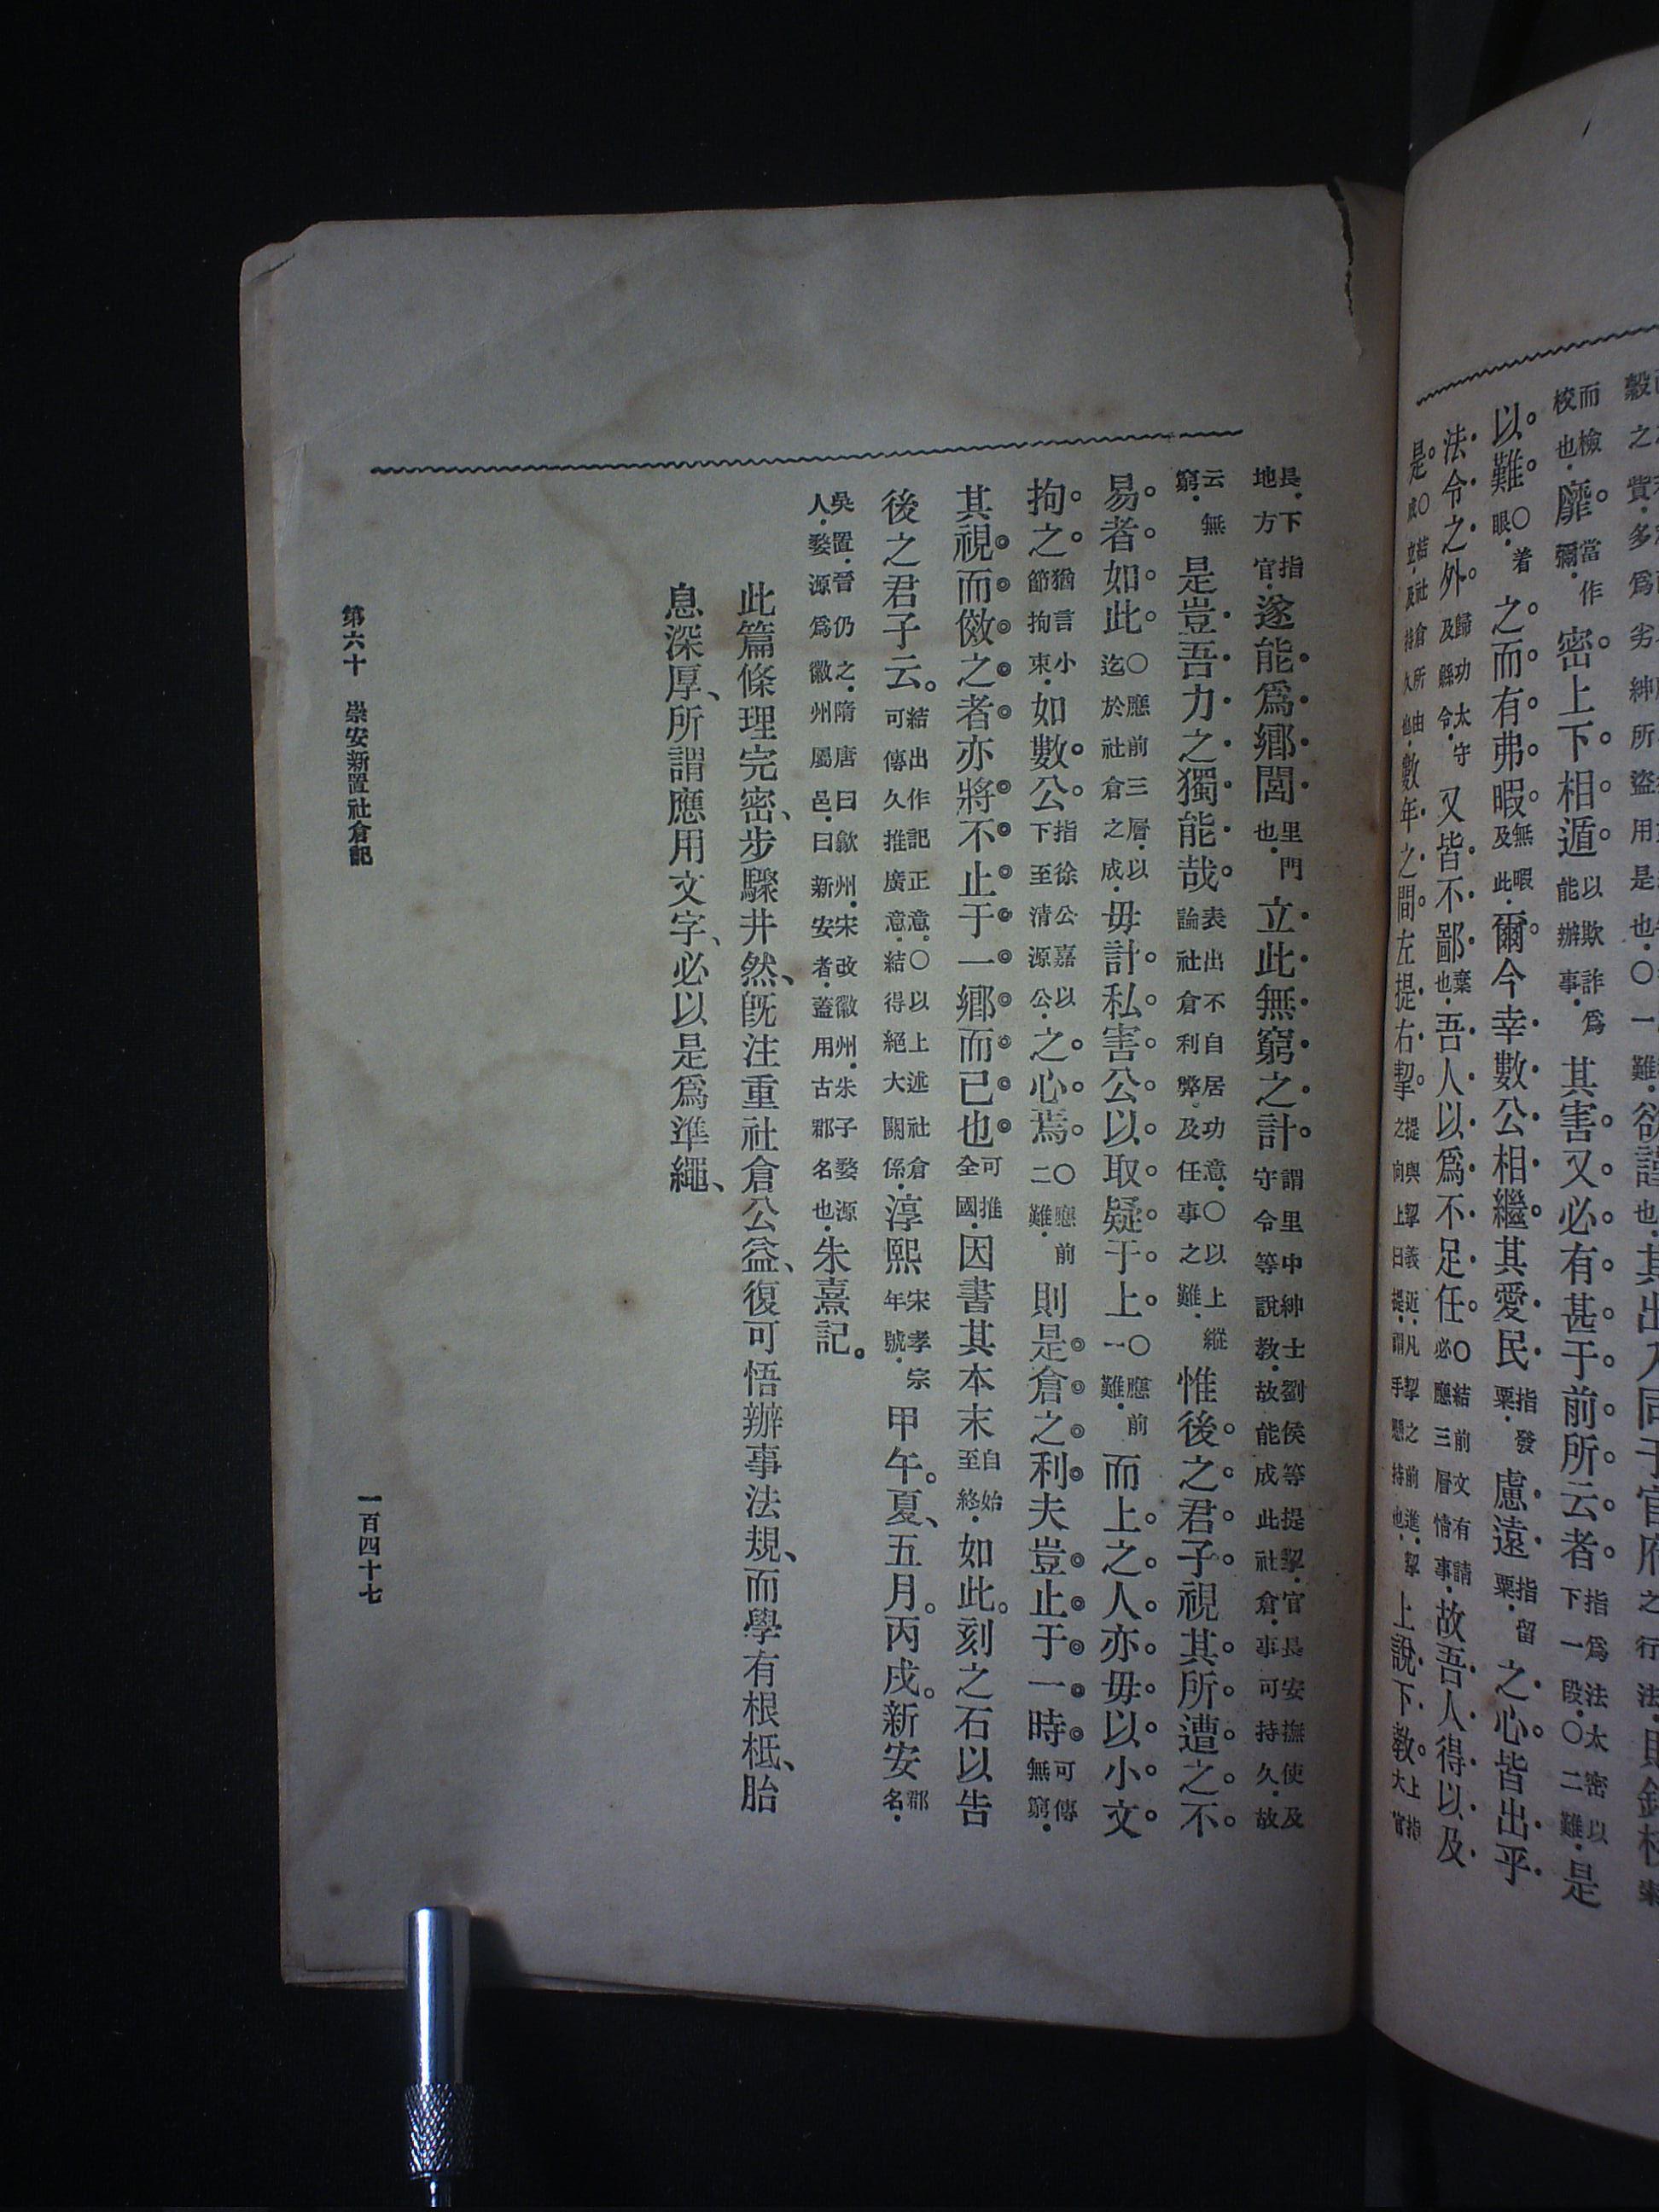 穀之貲.多為劣紳所盜用是也.○一難.欲謹其出入同于官府之行法.則鈎校
而檢校也.靡當作彌.密上下相遁。以欺詐為能辦事.其害又必有甚于前所云者。指為法太密以下一段.○二難.是
以難○着眼.之而有弗暇。無暇及此.爾今幸數公相繼。其愛民指發粟.慮遠指留粟.之心皆出乎
法令之外。歸功太守及縣令.又皆不鄙棄也.吾人以爲不足任。○結前文有請必應三層情事.故吾人得以及
是。○結社倉所由成立.及持久也.數年之間。左提右挈。提與挈義近.凡挈之前進.挈之向上曰提.謂手懸持也.上說下教。上指大官
長.下指地方官.遂能爲鄉閭里門也.立此無窮之計。謂里中紳士劉侯等提挈.官長安撫使及守令等說教.故能成此社倉.事可持久.故
云無窮.是豈吾力之獨能哉。表出不自居功意.○以上縱論社倉利弊及任事之難.惟後之君子。視其所遭之不
易者如此。○應前三層.以迄於社倉之成.毋計私害公以取疑于上。○應前一難.而上之人亦毋以小文
拘之。猶言小節拘束.如數公指徐公嘉以下至清源公.之心焉。○應前二難.則是倉之利夫豈止于一時。可傳無窮.
其視而傚之者亦將不止于一鄉而已也可推全國.因書其本末自始至終.如此。刻之石以告
後之君子云。結出作記正意.○以上述社倉可傳久推廣意.結得絕大關係.淳熙宋孝宗年號.甲午。夏、五月。丙戌。新安郡名.
吳置.晉仍之.隋唐曰歙州.宋改徽州.朱子婺源人.婺源爲徽州屬邑.曰新安者.蓋用古郡名也.朱熹記。
此篇條理完密、步驟井然、旣注重社倉公益、復可悟辦事法規、而學有根柢、胎
息深厚、所謂應用文字、必以是爲準繩、
第六十　崇安新置社倉記
一百四十七